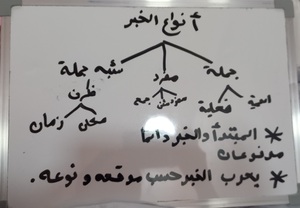 أنواع الخبر
جملة مفرد شبه جملة
اسمية فعلية جمع ظرف
مكان زمان
* المبتدأ والخبر دائما
مرفوعان
* يعرب الخبر حسب موقعه ونوعه.